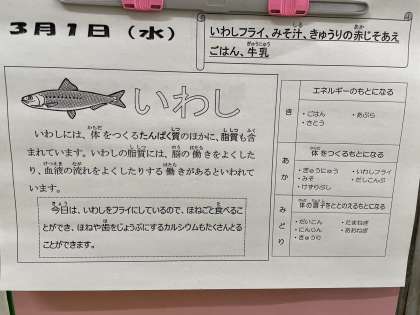 3月1日（水）
いわしフライ、みそ汁、きゅうりの赤じそあえ
ごはん、牛乳
いわし
いわしには、体をつくるたんぱく質のほかに、脂質も含
まれています。いわしの脂質には、脳の働きをよくした
り、血液の流れをよくしたりする働きがあるといわれて
います。
今日は、いわしをフライにしているので、ほねごと食べるこ
とができ、ほねや歯をじょうぶにするカルシウムもたくさんとる
ことができます。
き
エネルギーのもとになる
・ごはん ・あぶら
・さとう
あか
体をつくるもとになる
・ぎゅうにゅう ・いわしフライ
・みそ ・だしこんぶ
・けずりぶし
みどり
体の調子をととのえるもとになる
・だいこん ・たまねぎ
・にんじん ・あおねぎ
・きゅうり